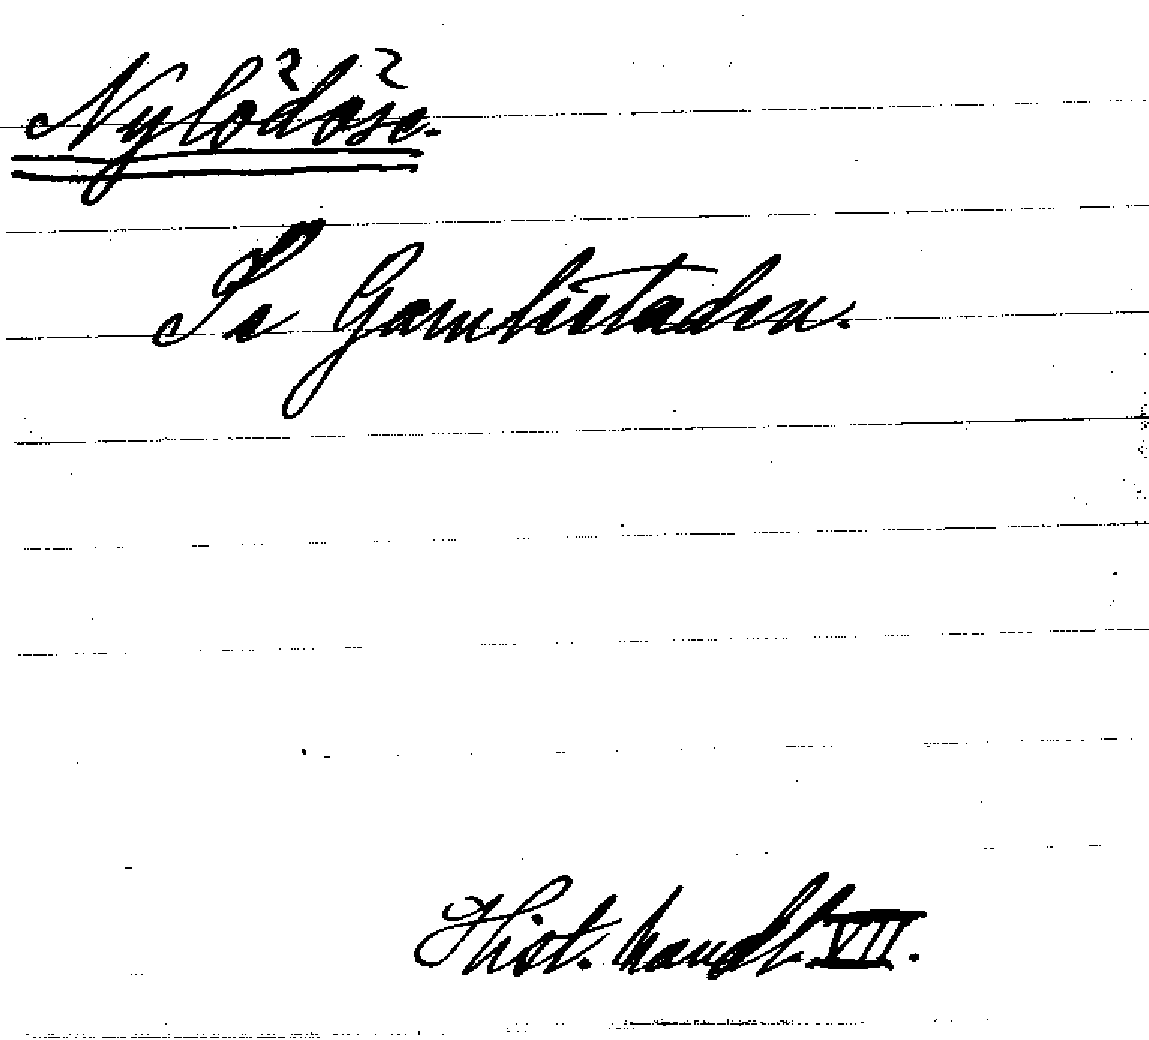 Nylödöse.
Se Gamlestaden.
Hist. handl. VII.